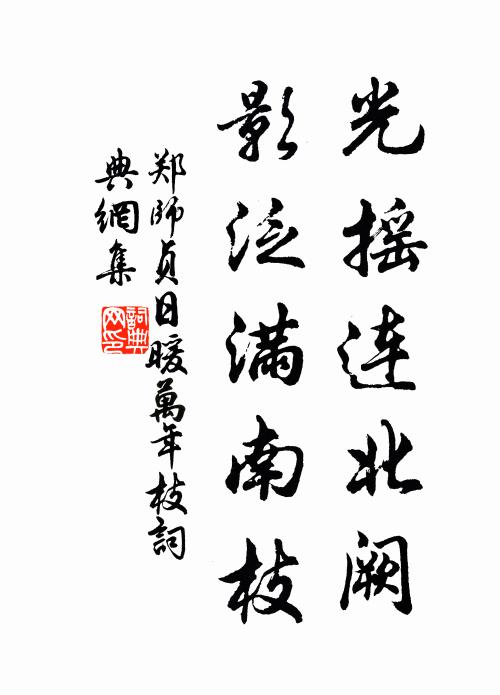 光摇连北阙
影泛满南枝
郑师贞日暖萬年枝詞
典網集
詞典网印